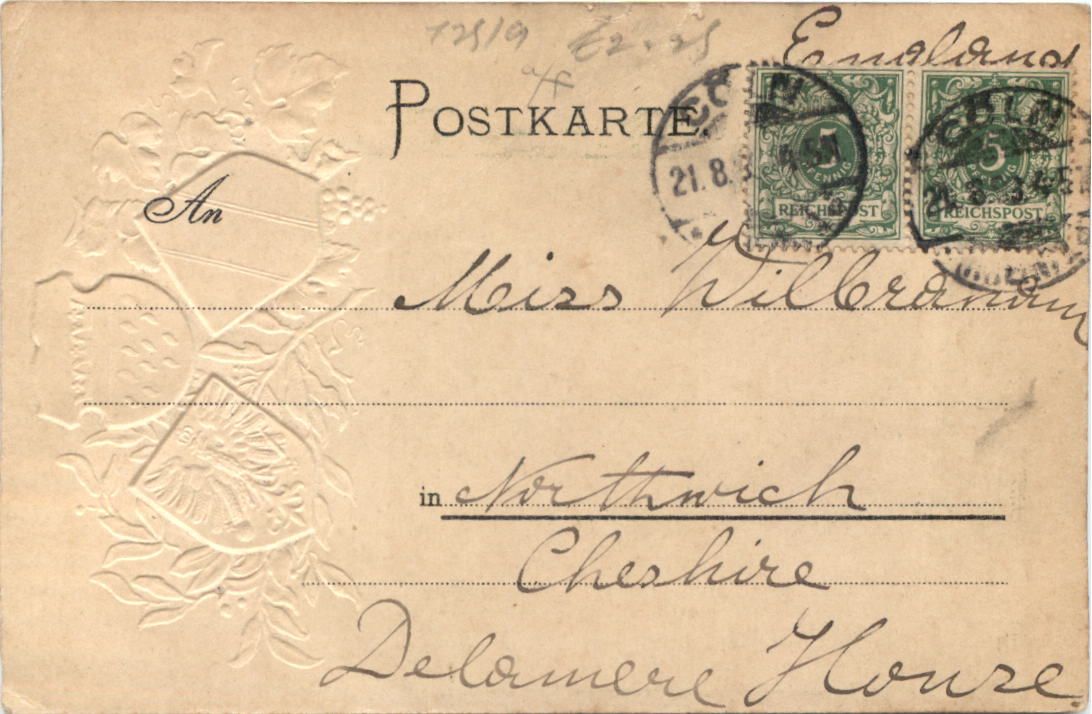 12519 £2.25
England
POSTKARTE.
CÖLN
21.8.
5
PFENNIG
REICHSPOST
CÖLN
5
PFENNIG
REICHSPOST
An
Miss Wilbraham
in Northwich
Cheshire
Delamere House